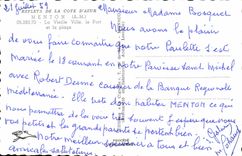 21 juillet 59
REFLETS DE LA COTE D'AZUR
MENTON (A.M.)
La Vieille Ville, le Port
et la plage
Monsieur Madame Bosquet
Nous avons le plaisir
de vous faire connaitre que notre Paulette s'est
mariée le 18 courant en notre Paroisse Saint Michel
avec Robert caissier de la Banque Régionale
méditerranée. Elle va donc habiter MENTON ce qui
nous permettra de la voir très souvent. J'espère que vous
vos petits et les grands parents se portent bien.
Notre meilleur souvenir a tous et bien
amicales salutations